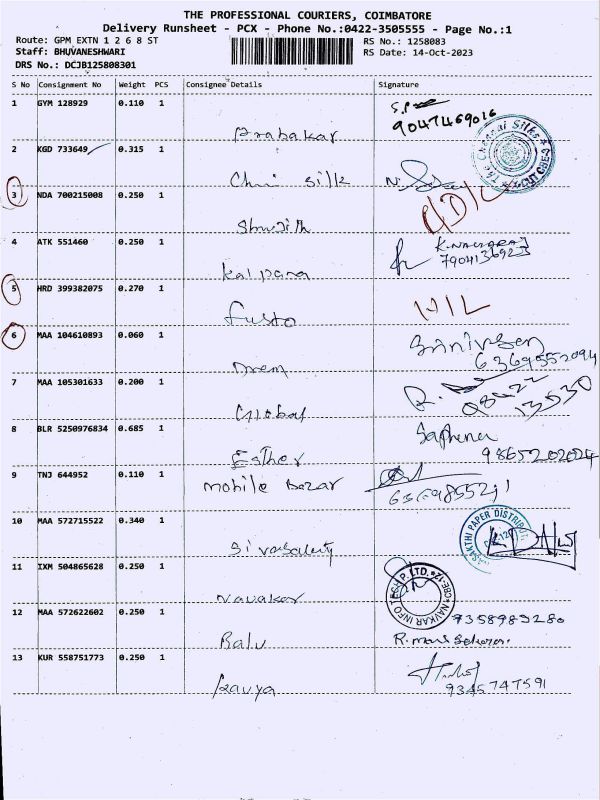 THE PROFESSIONAL COURIERS, COIMBATORE
Delivery Runsheet - PCX - Phone No.:0422-3505555 - Page No.:1
Route: GPM EXTN 1 2 6 8 ST
RS No.: 1258083
Staff: BHUVANESHWARI
RS Date: 14-Oct-2023
DRS No.: DCJB125808301
S No Consignment No Weight PCS Consignee Details Signature
1 GYM 128929 0.110 1
9047469016
Prabakar
2 KGD 733649 0.315 1
The Chennai Silks
silk
3 NDA 700215008 0.250 1
4 ATK 551460 0.250 1
7904136923
Kalpana
5 HRD 399382075 0.270 1
6 MAA 104610893 0.060 1
Srinivasan
6369552094
7 MAA 105301633 0.200 1
Global
8 BLR 5250976834 0.685 1
Esther
9865202024
9 TNJ 644952 0.110 1
mobile Bazar
10 MAA 572715522 0.340 1
PAPER DISTRIBUT
11 IXM 504865628 0.250 1
NAVKAR INFOTECH P. LTD. CBE-12
Navakar
12 MAA 572622602 0.250 1
7358983280
Balu
13 KUR 558751773 0.250 1
9345747591
Kavya